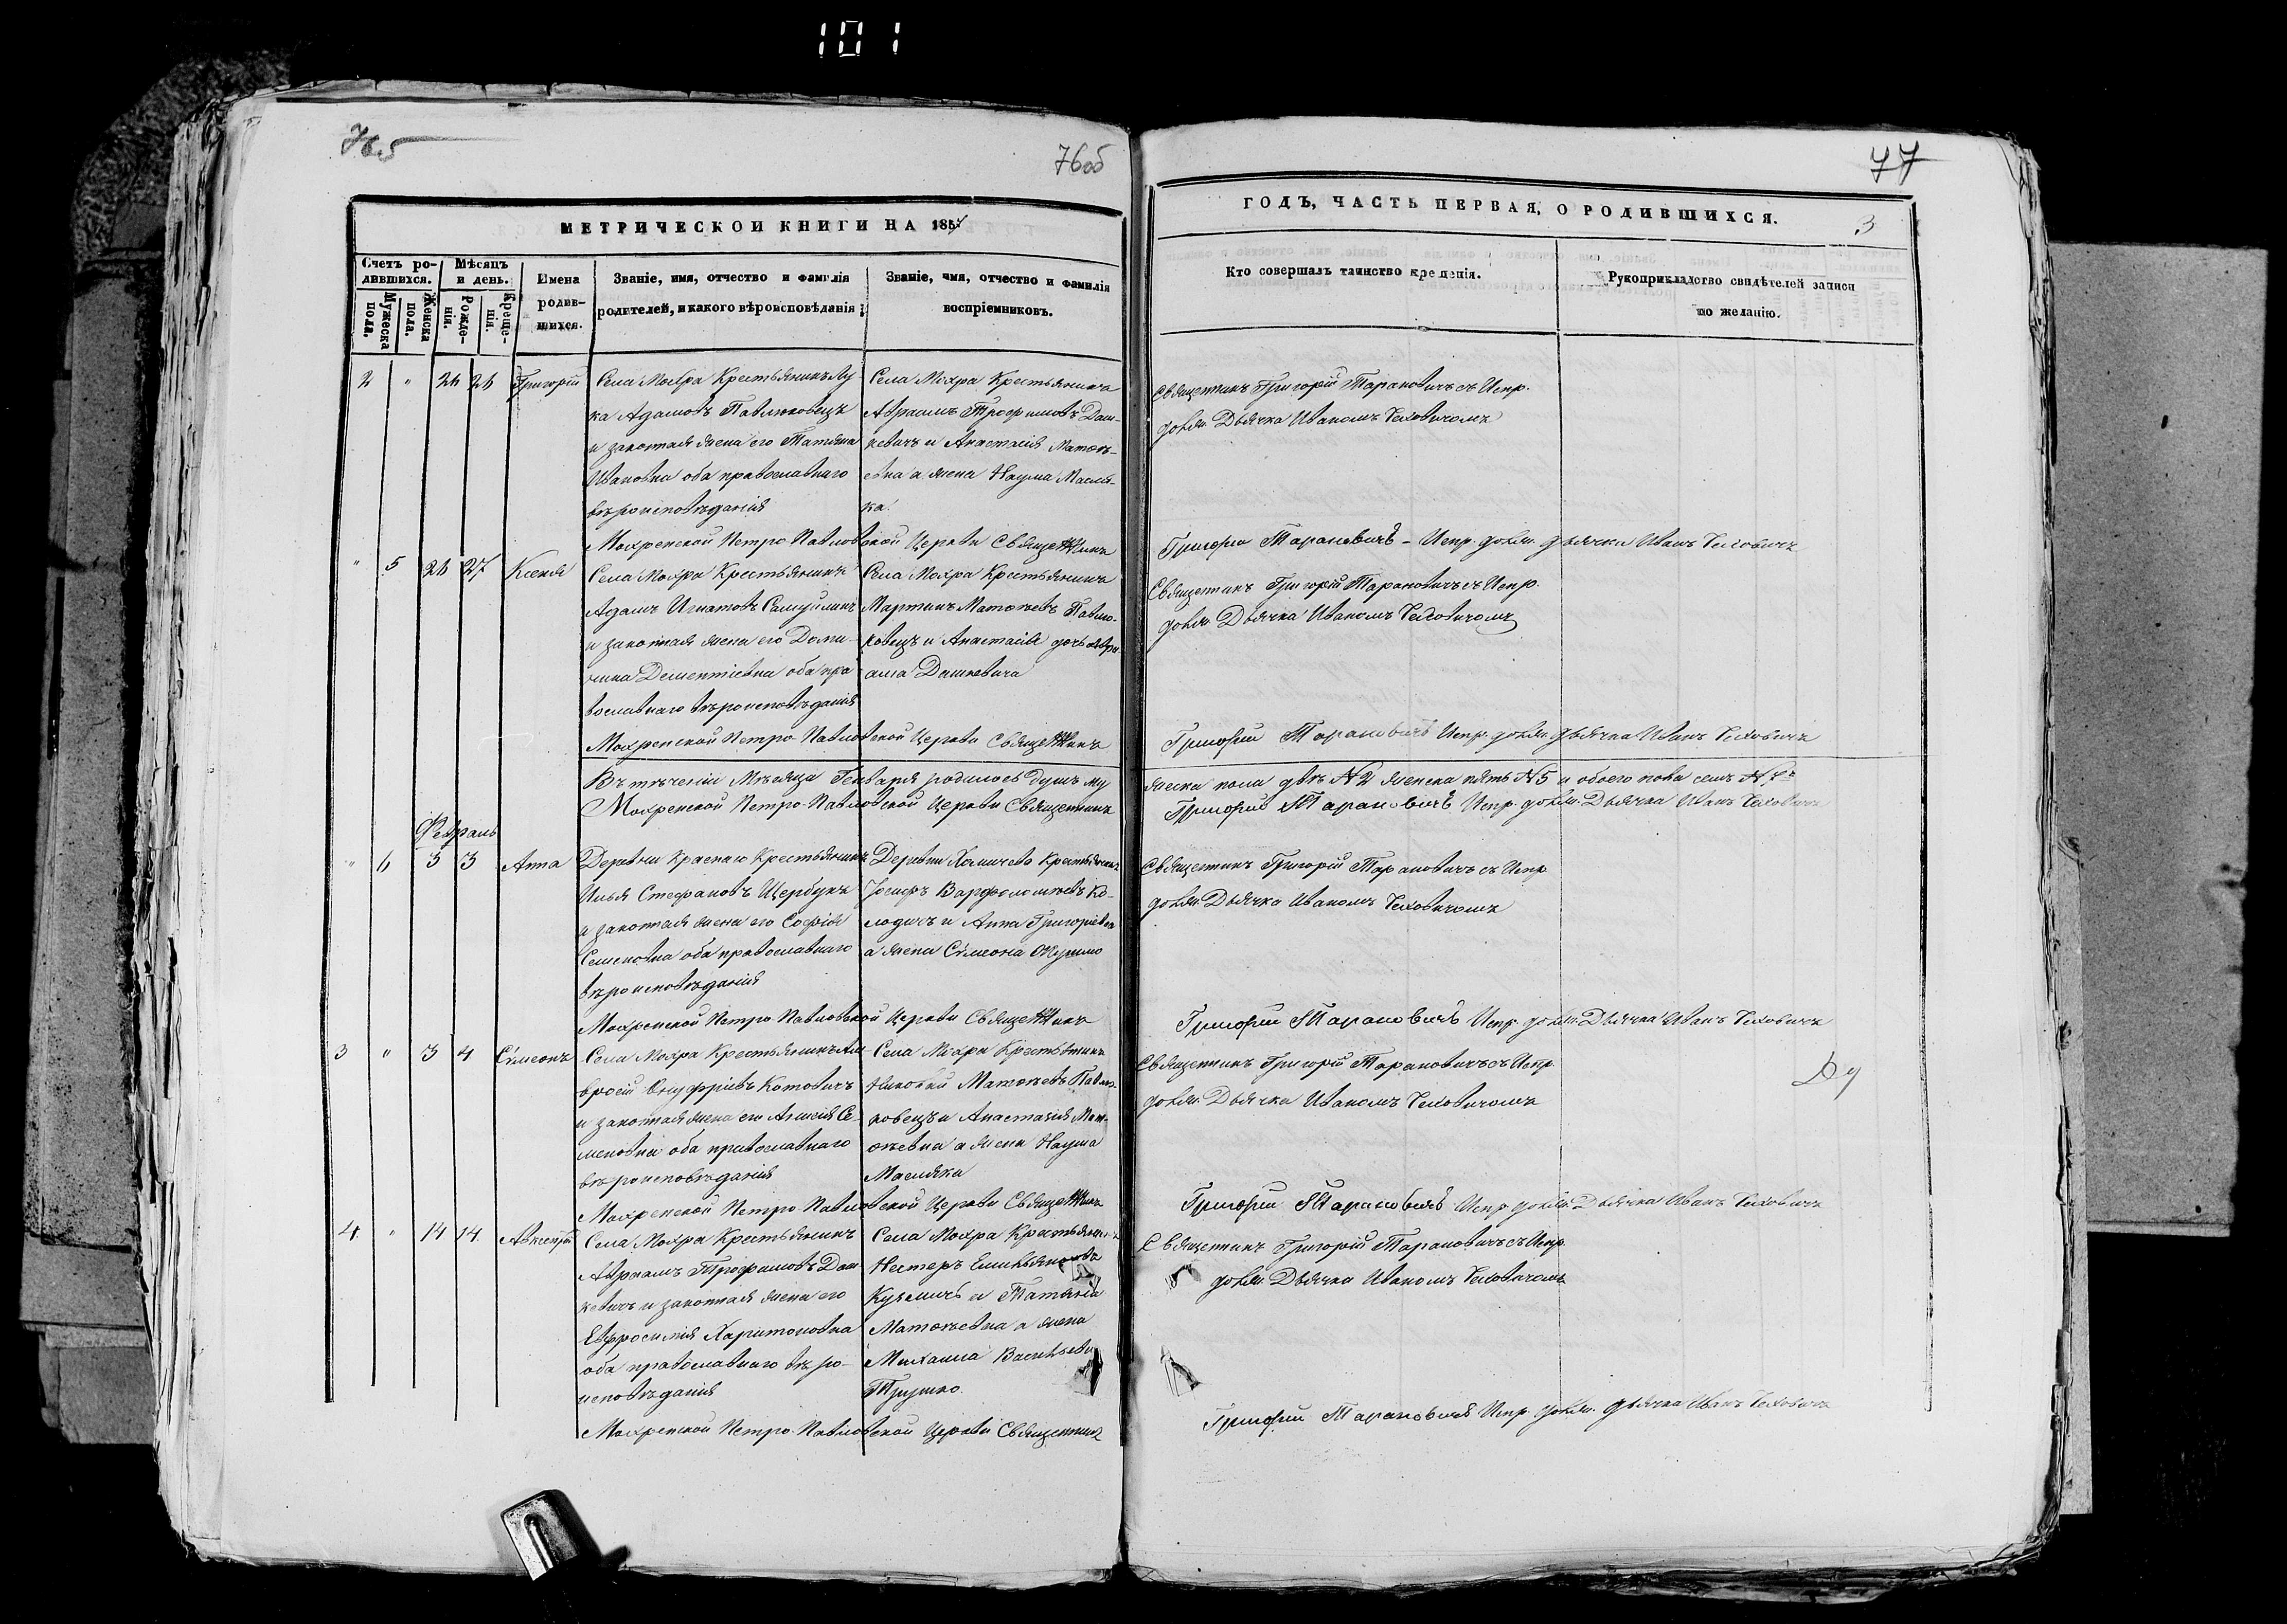 101
765
76об
77
МЕТРИЧЕСКОЙ КНИГИ НА 185
ГОДЪ, ЧАСТЬ ПЕРВАЯ, О РОДИВШИХСЯ.
3
Счетъ ро-
дившихся.
Мѣсяцъ
и день.
Мужеска
пола.
Женска
пола.
Рожде-
нія.
Креще-
нія.
Имена
родив-
шихся.
Званіе, имя, отчество и фамилія
родителей, и какого вѣроисповѣданія
Званіе, имя, отчество и фамилія
воспріемниковъ.
Кто совершалъ таинство крещенія.
Рукоприкладство свидѣтелей записи
по желанію.
2 " 26 26 Григорій
Села Мохра Крестьянинъ Лу
ка Адамовъ Павлюковецъ
и законная жена его Татьяна
Ивановна оба православнаго
вѣроисповѣданія
Села Мохра Крестьянинъ
Авраамъ Трофимовъ Даш-
кевичъ и Анастасія Матѳѣ-
евна а жена Наума Масля-
ка.
Священникъ Григорій Тарановичъ съ Испр.
должн. Дьячка Иваномъ
Мохренской Петро-Павловской Церкви Священникъ Григорій Тарановичъ - Испр. должн. дьячка Иванъ
" 5 26 27 Ксенія
Села Мохра Крестьянинъ
Адамъ Игнатовъ
и законная жена его Доми-
кика Дементіевна оба пра
вославнаго вѣроисповѣданія
Села Мохра Крестьянинъ
Мартинъ Матѳѣевъ Павлю-
ковецъ и Анастасія дочь Авра
ама Дашкевича
Священникъ Григорій Тарановичъ съ Испр.
должн. Дьячка Иваномъ
Мохренской Петро-Павловской Церкви Священникъ Григорій Тарановичъ Испр. должн. дьячка Иванъ
Въ теченіи Мѣсяца Генваря родилось душъ му жеска пола двѣ №2 женска пять №5 и обоего пола семь №7
Мохренской Петро-Павловской Церкви Священникъ Григорій Тарановичъ Испр. должн. Дьячка Иванъ
Февраль
" 6 3 3 Анна
Деревни Краснаго Крестьянинъ
Илья Стефановъ Щербукъ
и законная жена его Софія
Семеновна оба православнаго
вѣроисповѣданія
Деревни Крестьянинъ
Іосифъ Варфоломѣевъ Ко-
лодичъ и Анна Григоріевн
а жена Сѵмеона
Священникъ Григорій Тарановичъ съ Испр
должн. Дьячка Иваномъ
Мохренской Петро-Павловской Церкви Священникъ Григорій Тарановичъ Испр. должн. Дьячка Иванъ
3 " 3 4 Сѵмеонъ
Села Мохра Крестьянинъ Ам
вросій Онуфріевъ Котовичъ
и законная жена его Агнесія Се
меновна оба православнаго
вѣроисповѣданія
Села Мохра Крестьянинъ
Николай Матѳѣевъ Павлю-
ковецъ и Анастасія Мат-
ѳѣевна а жена Наума
Масляка
Священникъ Григорій Тарановичъ съ Испр.
должн. Дьячка Иваномъ
Мохренской Петро-Павловской Церкви Священникъ Григорій Тарановичъ Испр. должн. Дьячка Иванъ
4 " 14 14 Авксентій
Села Мохра Крестьянинъ
Авраамъ Трофимовъ Даш
кевичъ и законная жена его
Евфросинія Харитоновна
оба православнаго вѣро-
исповѣданія
Села Мохра Крестьянинъ
Нестеръ Емильяновъ
Кузьмичъ и Татьяна
Матѳѣевна а жена
Михаила Васильева
Трушко.
Священникъ Григорій Тарановичъ съ Испр.
должн. Дьячка Иваномъ
Мохренской Петро-Павловской Церкви Священникъ Григорій Тарановичъ Испр. должн. дьячка Иванъ